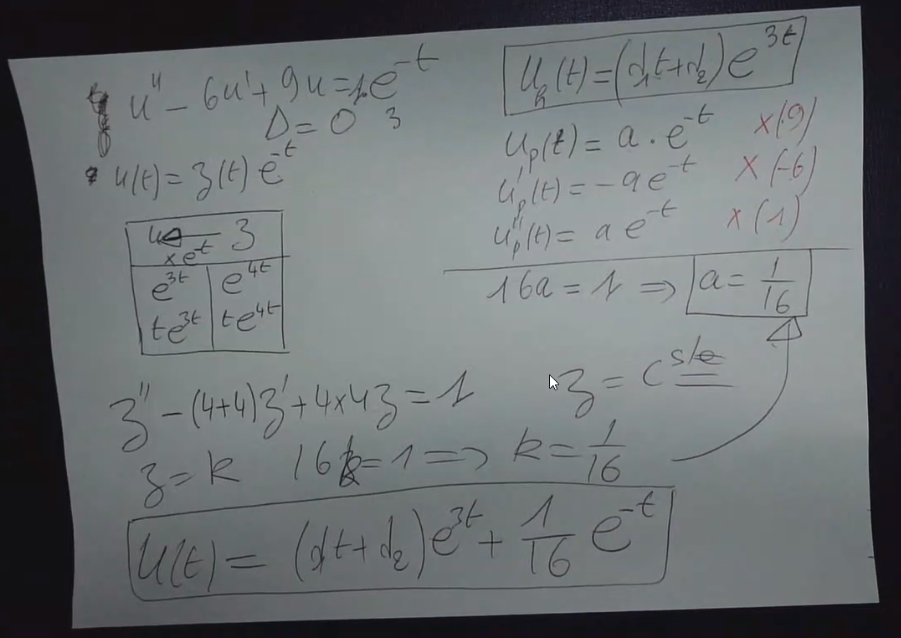 u'' - 6u' + 9u = 1.e^{-t}
Δ = 0 3
u(t) = z(t) e^{-t}
u ← z
x e^{-t}
e^{3t} e^{4t}
te^{3t} te^{4t}
u_h(t) = (d_1t+d_2) e^{3t}
u_p(t) = a . e^{-t} x(9)
u_p'(t) = -a e^{-t} x(-6)
u_p''(t) = a e^{-t} x(1)
16a = 1 ⇒ a = 1/16
z'' - (4+4)z' + 4x4z = 1
z = c^{ste}
z = k 16k = 1 ⇒ k = 1/16
u(t) = (d_1t+d_2)e^{3t} + 1/16 e^{-t}